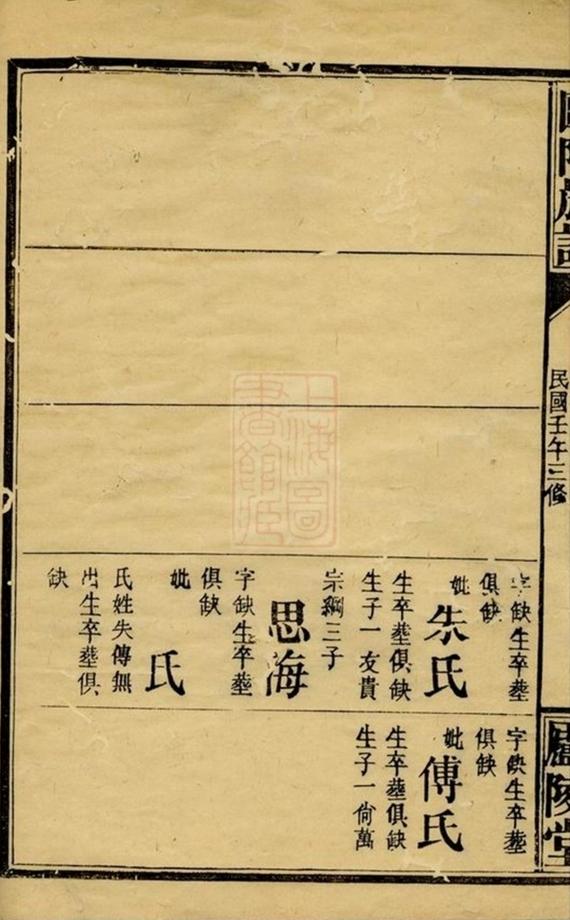 歐陽族譜
民國壬午三修
廬陵堂
字缺生卒塟
俱缺
妣朱氏
生卒塟俱缺
生子一友貴
宗綱三子
思海
字缺生卒塟
俱缺
妣 氏
氏姓失傳無
出生卒塟俱
缺
字缺生卒塟
俱缺
妣傅氏
生卒塟俱缺
生子一尙萬
上海圖
書館藏